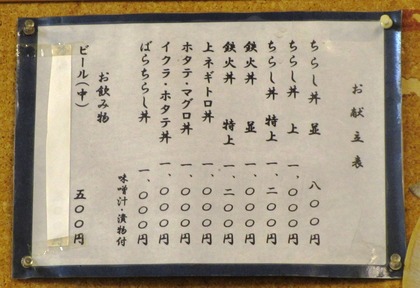 お献立表
ちらし丼 並 八〇〇円
ちらし丼 上 一、〇〇〇円
ちらし丼 特上 一、二〇〇円
鉄火丼 並 一、〇〇〇円
鉄火丼 特上 一、二〇〇円
上ネギトロ丼 一、〇〇〇円
ホタテ・マグロ丼 一、〇〇〇円
イクラ・ホタテ丼 一、〇〇〇円
ばらちらし丼 一、〇〇〇円
味噌汁・漬物付
お飲み物
ビール(中) 五〇〇円